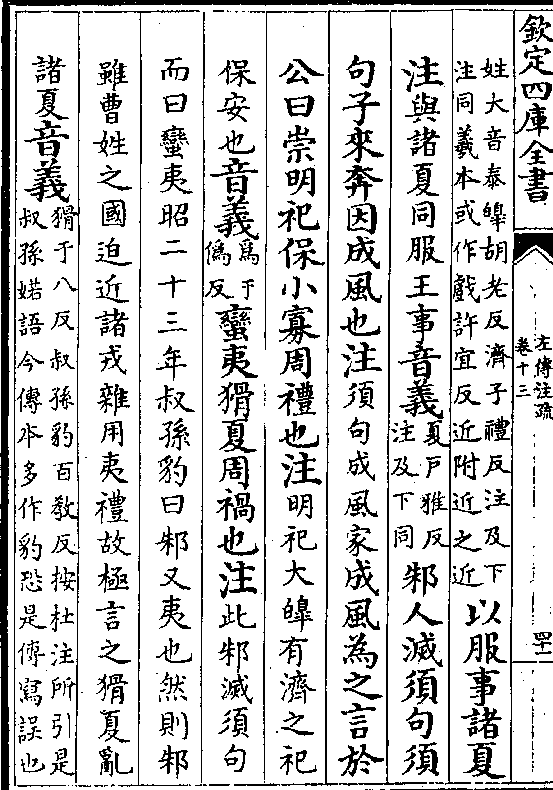 欽定四庫全書
左傳注疏
卷十三
四十一
姓大音泰皥胡老反濟子禮反注及下
注同羲本或作戲許宜反近附近之近
以服事諸夏
注與諸夏同服王事音義
夏戶雅反
注及下同
邾人滅須句須
句子來奔因成風也注須句成風家成風為之言於
公曰崇明祀保小寡周禮也注明祀大皥有濟之祀
保安也音義
為于
偽反
蠻夷猾夏周禍也注此邾滅須句
而曰蠻夷昭二十三年叔孫豹曰邾又夷也然則邾
雖曹姓之國迫近諸戎雜用夷禮故極言之猾夏亂
諸夏音義
猾于八反叔孫豹百教反按杜注所引是
叔孫婼語今傳本多作豹恐是傳寫誤也